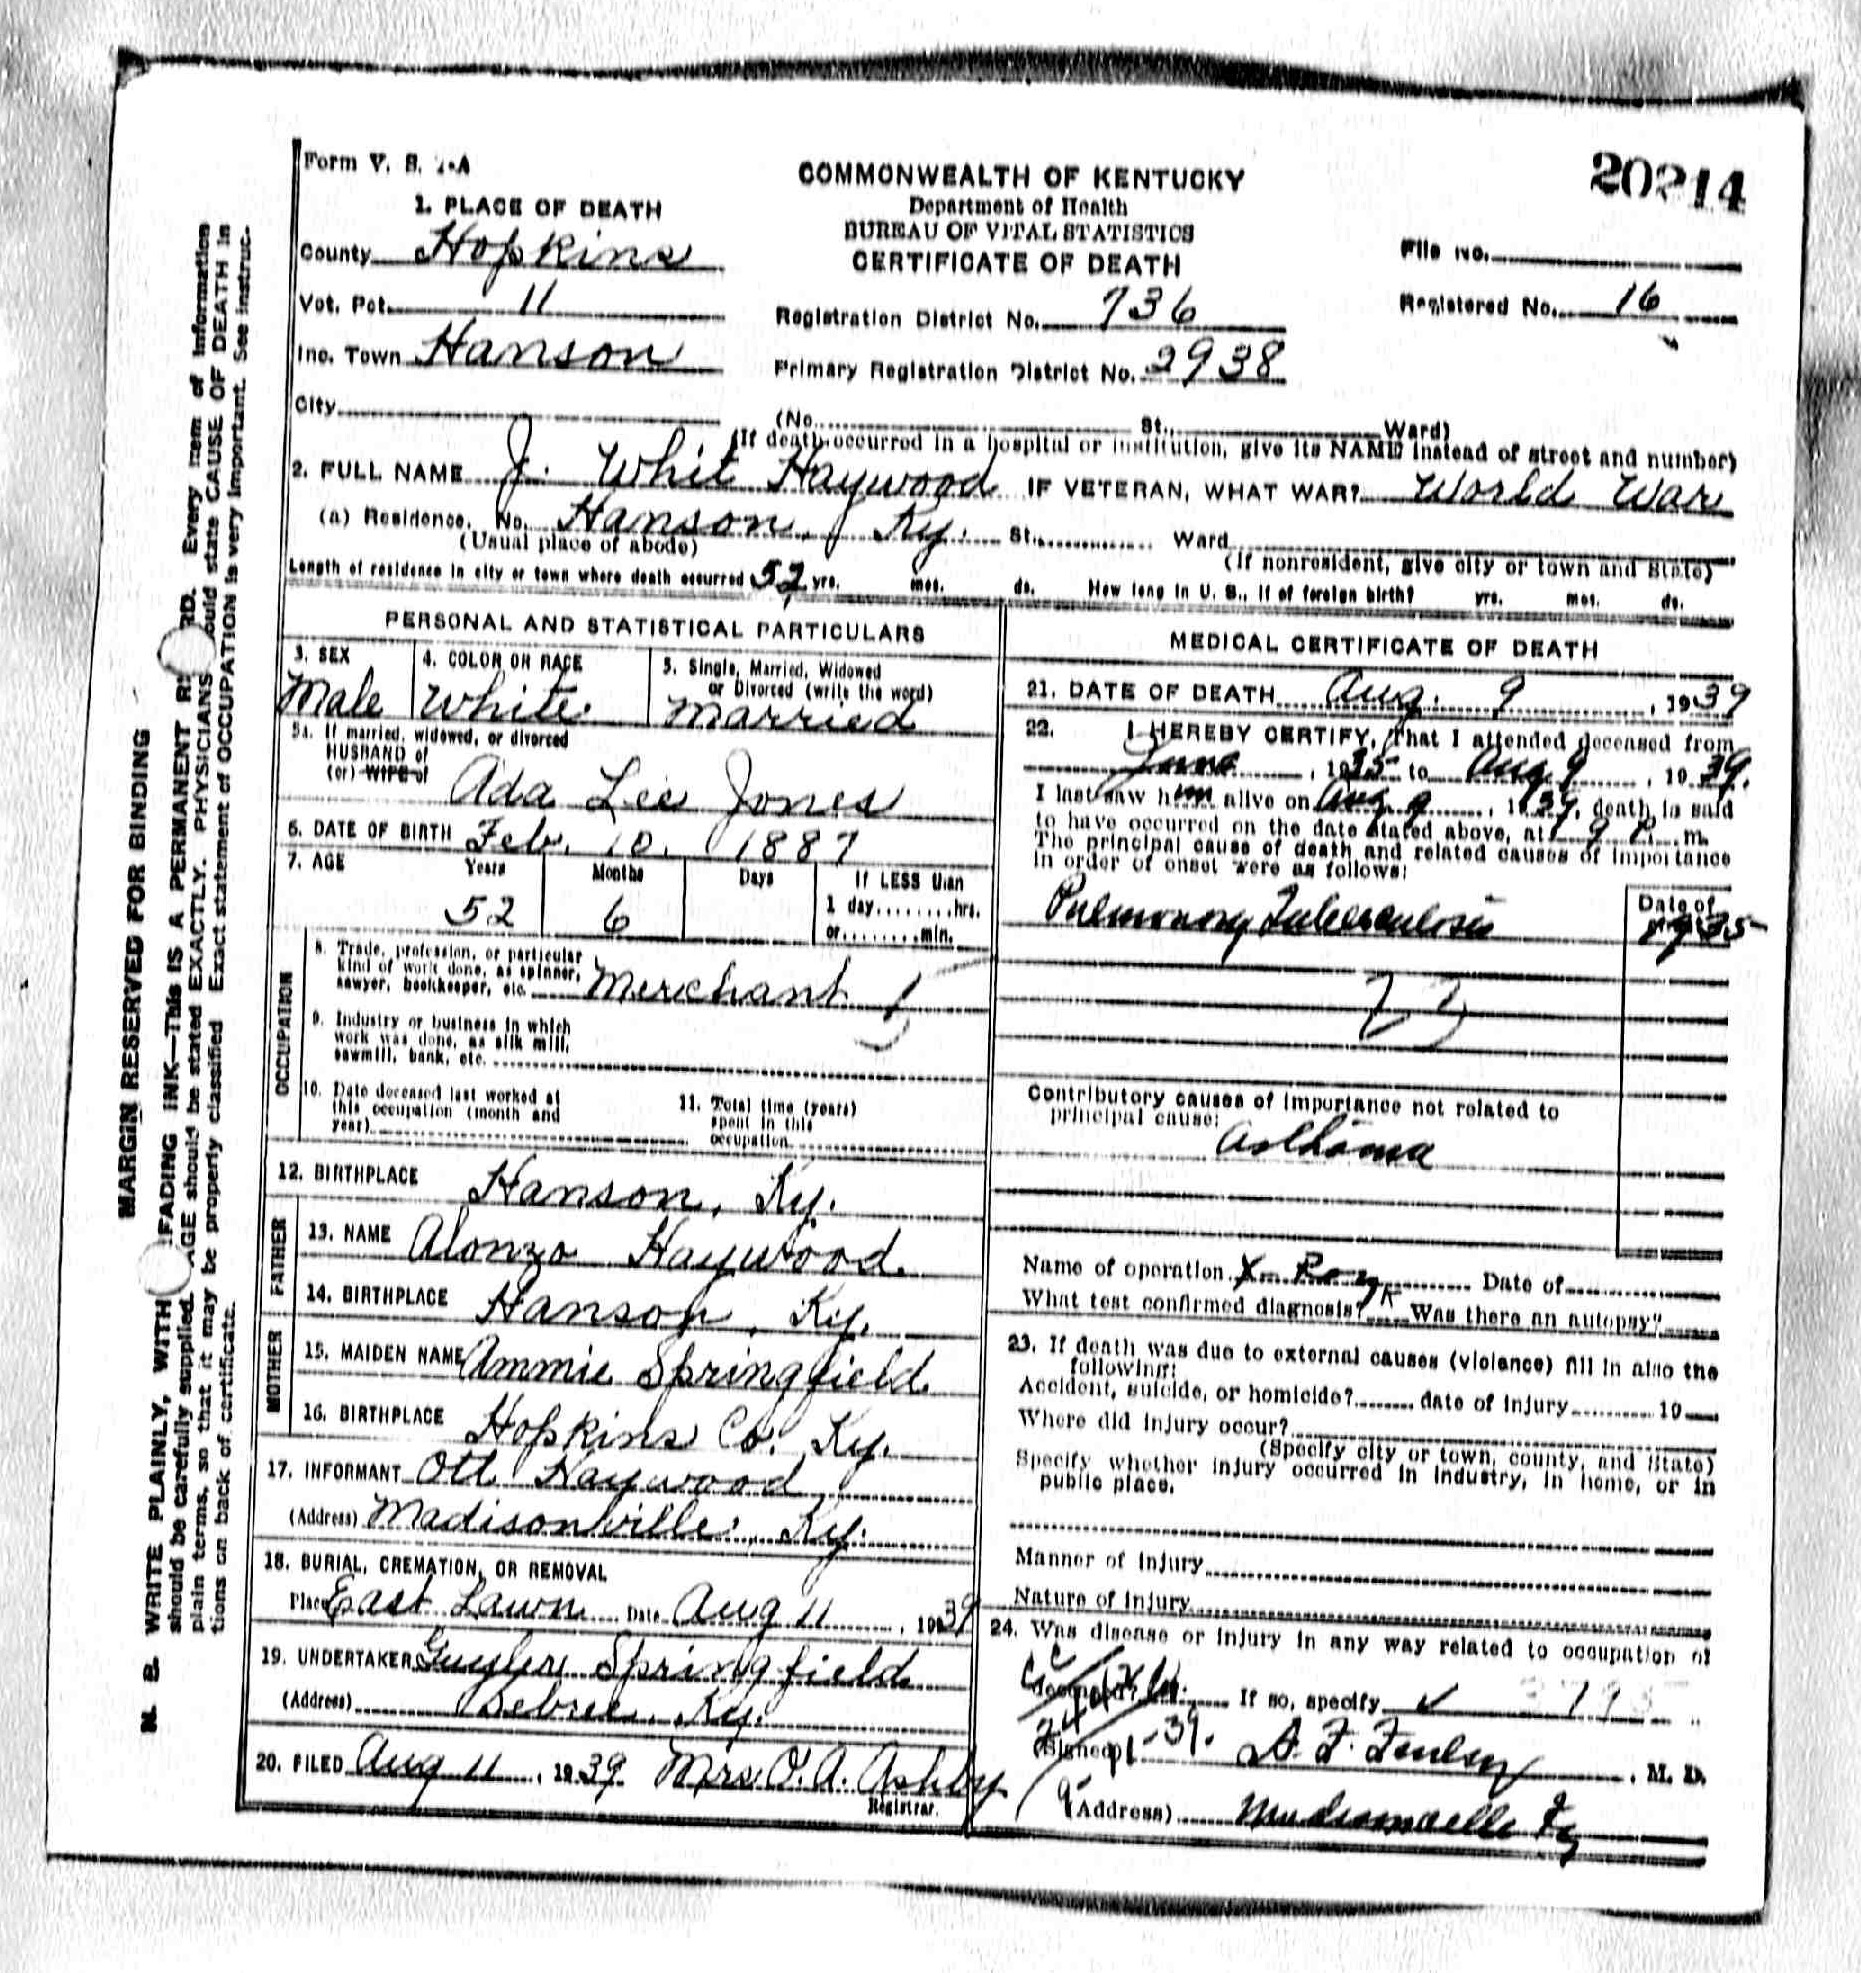 Form V. S. 1-A
20214
COMMONWEALTH OF KENTUCKY
Department of Health
BUREAU OF VITAL STATISTICS
CERTIFICATE OF DEATH
1. PLACE OF DEATH
County Hopkins
Vot. Pct. 11
Inc. Town Hanson
City
File No.
Registered No. 16
Registration District No. 736
Primary Registration District No. 2938
(No. St., Ward)
(If death occurred in a hospital or institution, give its NAME instead of street and number)
2. FULL NAME J. Whit Haywood IF VETERAN, WHAT WAR? World War
(a) Residence. No. Hanson, Ky. St., Ward
(Usual place of abode) (If nonresident, give city or town and State)
Length of residence in city or town where death occurred 52 yrs. mos. ds. How long in U. S., if of foreign birth? yrs. mos. ds.
PERSONAL AND STATISTICAL PARTICULARS
3. SEX
Male
4. COLOR OR RACE
White
5. Single, Married, Widowed
or Divorced (write the word)
Married
5a. If married, widowed, or divorced
HUSBAND of
(or) WIFE of
Ada Lee Jones
6. DATE OF BIRTH Feb. 10. 1887
7. AGE Years Months Days If LESS than
1 day........hrs.
52 6
or........min.
OCCUPATION
8. Trade, profession, or particular
kind of work done, as spinner,
sawyer, bookkeeper, etc. Merchant
9. Industry or business in which
work was done, as silk mill,
sawmill, bank, etc.
10. Date deceased last worked at
this occupation (month and
year)
11. Total time (years)
spent in this
occupation
12. BIRTHPLACE Hanson, Ky.
FATHER
13. NAME Alonzo Haywood
14. BIRTHPLACE Hanson, Ky.
MOTHER
15. MAIDEN NAME Ammie Springfield
16. BIRTHPLACE Hopkins Co. Ky.
17. INFORMANT Ott Haywood
(Address) Madisonville, Ky.
18. BURIAL, CREMATION, OR REMOVAL
Place East Lawn Date Aug 11, 1939
19. UNDERTAKER Guyler Springfield
(Address) Sebree, Ky.
20. FILED Aug 11, 1939 Mrs. O. A. Ashby
Registrar.
MEDICAL CERTIFICATE OF DEATH
21. DATE OF DEATH Aug. 9, 1939
22. I HEREBY CERTIFY, That I attended deceased from
June, 1935 to Aug 9, 1939.
I last saw him alive on Aug 9, 1939, death is said
to have occurred on the date stated above, at 9 P. m.
The principal cause of death and related causes of importance
in order of onset were as follows:
Date of
Pulmonary Tuberculosis 1935
23
Contributory causes of importance not related to
principal cause:
Asthma
Name of operation X-Ray Date of
What test confirmed diagnosis? Was there an autopsy?
23. If death was due to external causes (violence) fill in also the
following:
Accident, suicide, or homicide? date of injury 19
Where did injury occur?
(Specify city or town, county, and State)
Specify whether injury occurred in industry, in home, or in
public place.
Manner of Injury
Nature of Injury
24. Was disease or injury in any way related to occupation of
deceased? If so, specify
(Signed) M. D.
(Address) Madisonville Ky
MARGIN RESERVED FOR BINDING
N. B. WRITE PLAINLY, WITH FADING INK—THIS IS A PERMANENT Every item of information
should be carefully supplied. AGE should be stated EXACTLY. PHYSICIANS should state CAUSE OF DEATH in
plain terms, so that it may be properly classified. Exact statement of OCCUPATION is very important. See instruc-
tions on back of certificate.